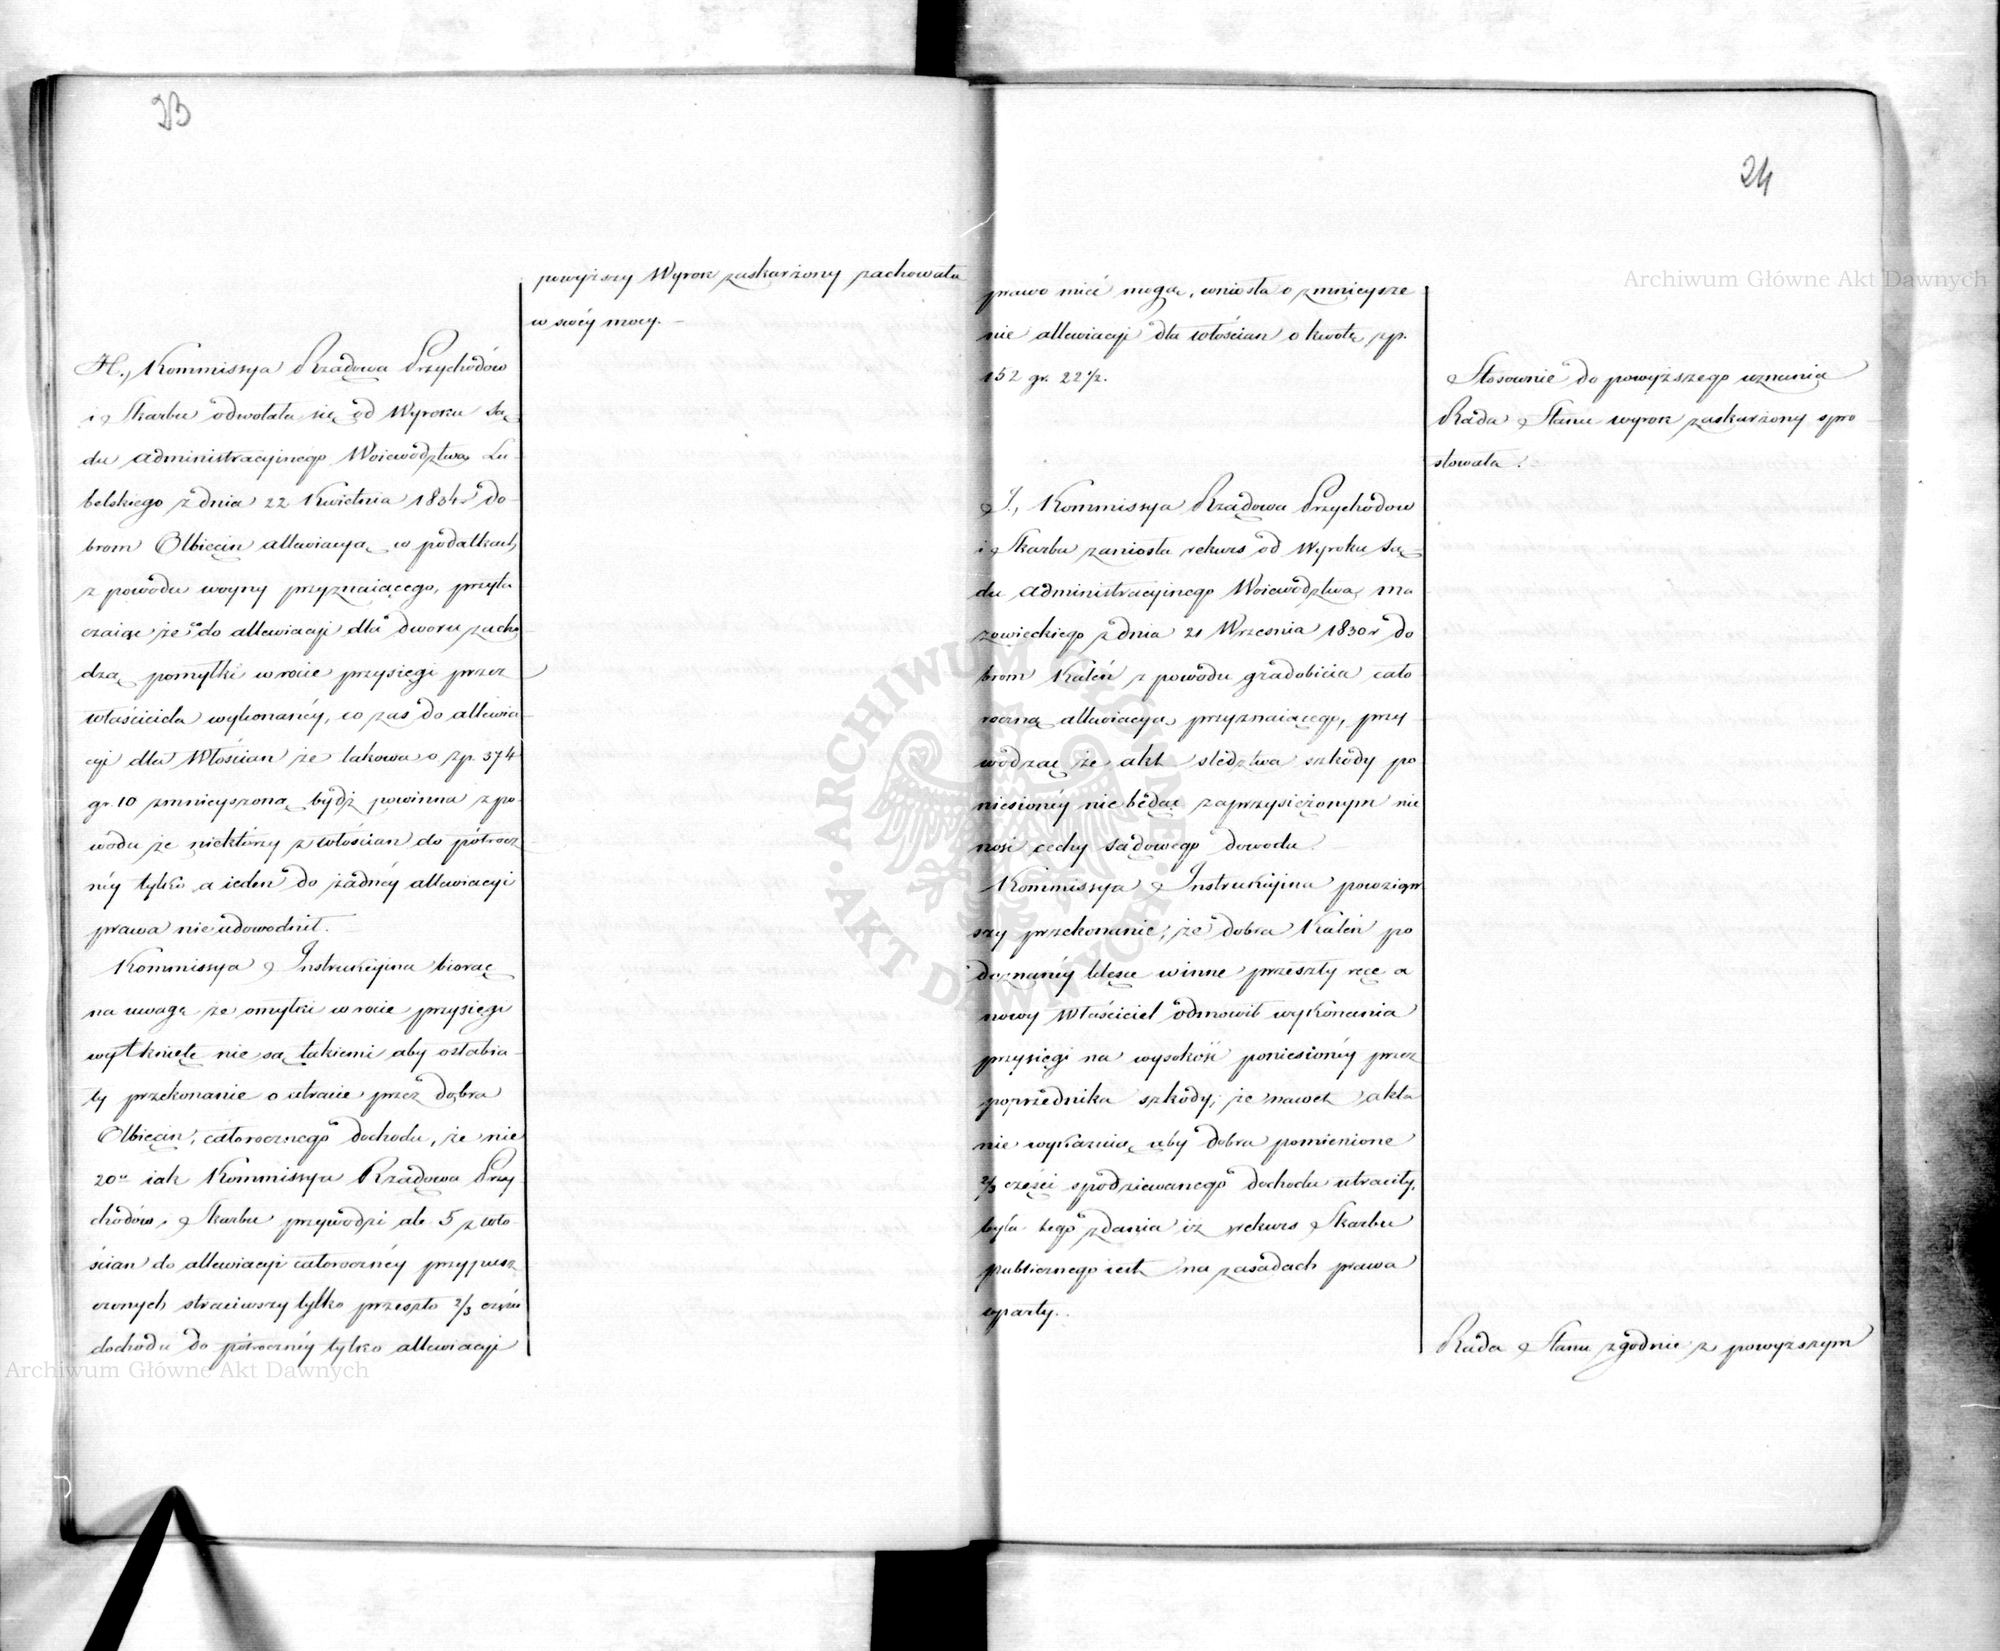 23
powyższy Wyrok zaskarżony zachowała
w swéy mocy. —
H., Kommissya Rządowa Przychodów
i Skarbu odwołała się od Wyroku Są
du Administracyinego Woiewództwa Lu
belskiego z dnia 22 Kwietnia 1834 r do
brom Olbięcin allewiacyą w podatkach
z powodu woyny przyznaiącego, przyta
czaiąc że do allewiacyi dla dworu zacho
dzą pomyłki w rocie przysięgi przez
właściciela wykonanéy, co zaś do allewia
cyi dla Włościan że takowa o zp. 374
gr. 10 zmnieyszoną bydź powinna z po
wodu że niektórzy z włościan do półrocz
néy tylko a ieden do żadnéy allewiacyi
prawa nie udowodnił. —
Kommissya Instrukcyina biorąc
na uwagę że omyłki w rocie przysięgi
wytknięte nie są takiemi aby osłabia
ły przekonanie o utracie przez dobra
Olbięcin, całorocznego dochodu, że nie
20u iak Kommissya Rządowa Przy
chodów i Skarbu przywodzi ale 5 z wło
ścian do allewiacyi całorocznéy przypusz
czonych straciwszy tylko przeszło 2/3 części
dochodu do półrocznéy tylko allewiacyi
24
prawo mieć mogą, wniosła o zmnieysze
nie allewiacyi dla włościan o kwotę zp.
152 gr. 22 1/2.
Stosownie do powyższego uznania
Rada Stanu wyrok zaskarżony spro
stowała.
I., Kommissya Rządowa Przychodow
i Skarbu zaniosła rekurs od Wyroku Są
du Administracyinego Woiewództwa Ma
zowieckiego z dnia 21 Września 1830 r do
brom Kaleń z powodu gradobicia cało
roczną allewiacyą przyznaiącego, przy
wodząc że akt śledztwa szkody po
niesionéy nie będąc zaprzysiężonym nie
nosi cechy sądowego dowodu.
Kommissya Instrukcyina powziąw
szy przekonanie, że dobra Kaleń po
doznanéy klęsce w inne przeszły ręce a
nowy Właściciel odmowił wykonania
przysięgi na wysokość poniesionéy przez
poprzednika szkody, że nawet akta
nie wykazuią aby dobra pomienione
2/3 części spodziewanego dochodu utraciły,
była tego zdania iż rekurs Skarbu
publicznego iest na zasadach prawa
oparty.
Rada Stanu zgodnie z powyższym
Archiwum Główne Akt Dawnych
Archiwum Główne Akt Dawnych
ARCHIWUM GŁÓWNE AKT DAWNYCH